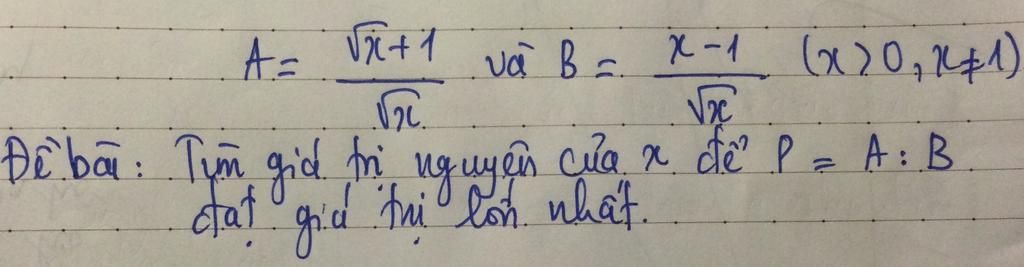 A = √x + 1 / √x và B = x - 1 / √x (x > 0, x ≠ 1)
Đề bài: Tìm giá trị nguyên của x để P = A : B
đạt giá trị lớn nhất.